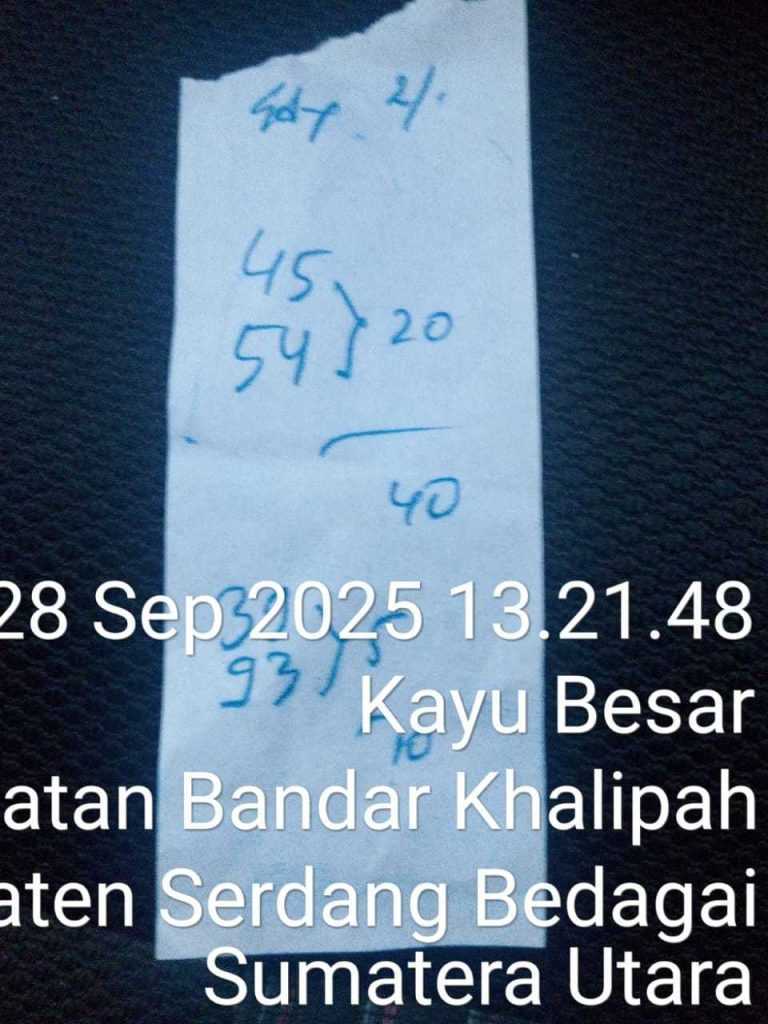 Sdy. 2/.
45
54 } 20
40
39 } 5
93
10
28 Sep 2025 13.21.48
Kayu Besar
atan Bandar Khalipah
aten Serdang Bedagai
Sumatera Utara